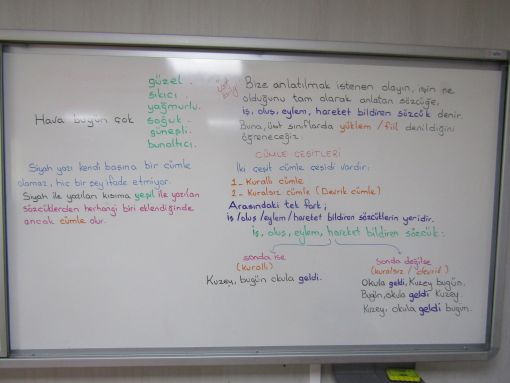 güzel.
sıkıcı.
yağmurlu.
Hava bugün çok soğuk.
güneşli.
bunaltıcı.
Siyah yazı kendi başına bir cümle
olamaz, hiç bir şey ifade etmiyor.
Siyah ile yazılan kısıma yeşil ile yazılan
sözcüklerden herhangi biri eklendiğinde
ancak cümle olur.
Bize anlatılmak istenen olayın, işin ne
olduğunu tam olarak anlatan sözcüğe,
iş, oluş, eylem, hareket bildiren sözcük denir.
Buna, üst sınıflarda yüklem / fiil denildiğini
öğreneceğiz.
CÜMLE ÇEŞİTLERİ
İki çeşit cümle çeşidi vardır:
1- Kurallı cümle
2- Kuralsız cümle (Devrik cümle)
Arasındaki tek fark;
iş / oluş / eylem / hareket bildiren sözcüklerin yeridir.
İş, oluş, eylem, hareket bildiren sözcük:
sonda ise
(kurallı)
Kuzey, bugün okula geldi.
sonda değilse
(kuralsız / devrik)
Okula geldi, Kuzey bugün.
Bugün, okula geldi Kuzey.
Kuzey, okula geldi bugün.